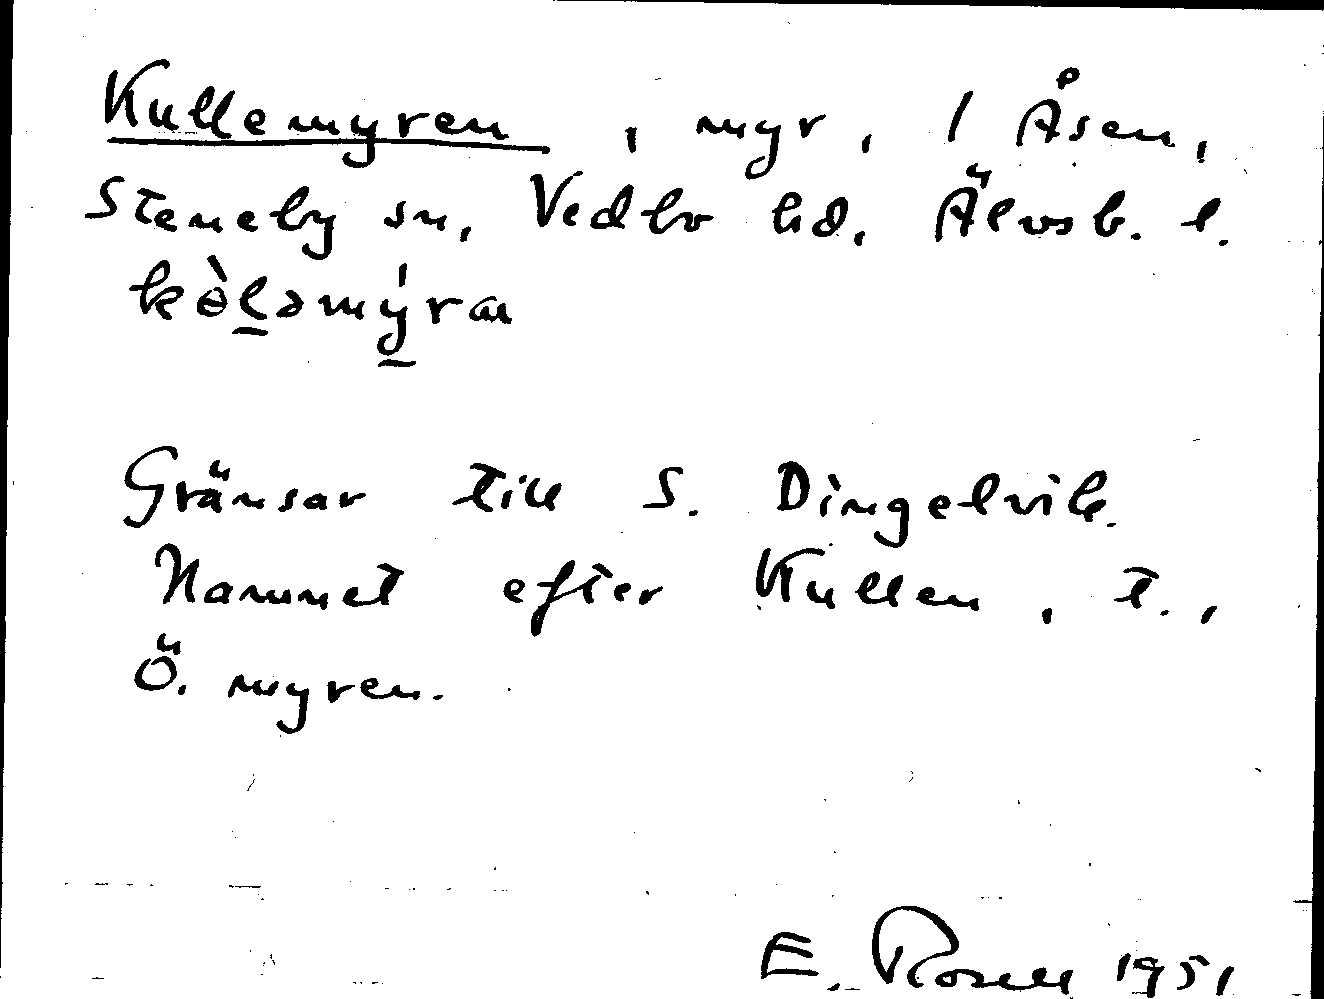 Kullemyren, myr, 1 Åsen,
Steneby sn, Vedbo hd. Älvsb. l.
kòlәmýra
Gränsar till S. Dingelvik.
Namnet efter Kullen, t.,
Ö. myren.
E. Rosell 1951